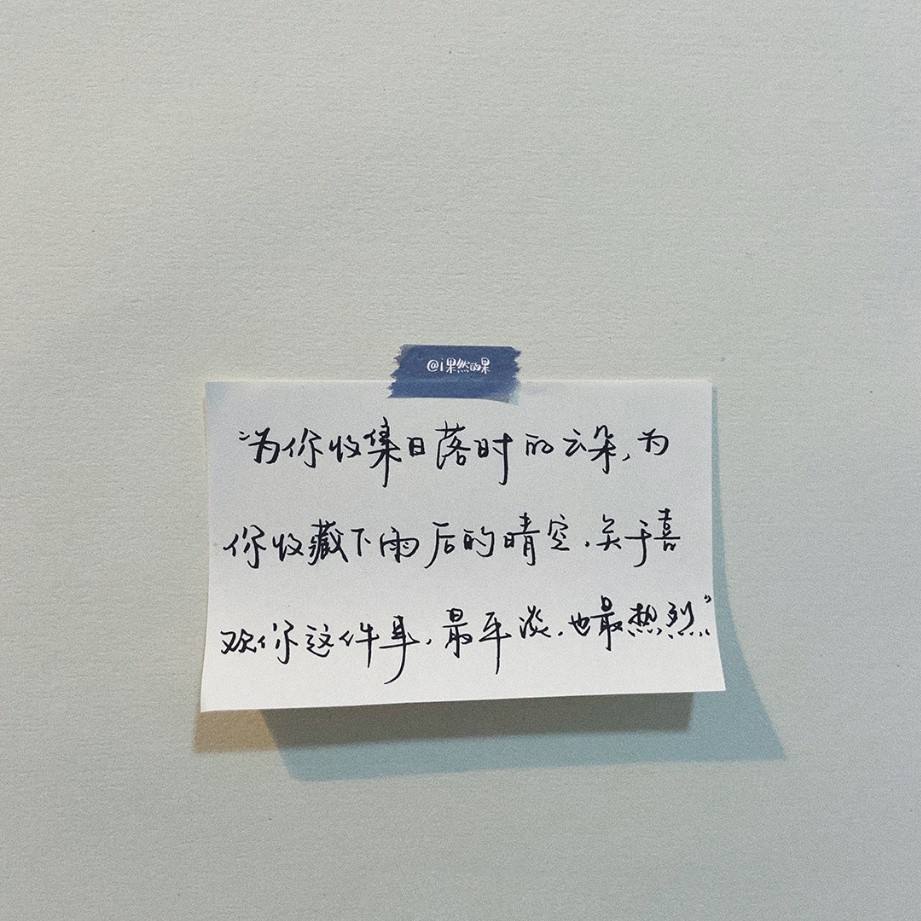 @i果然的果
“为你收集日落时的云朵,为
你收藏下雨后的晴空.关于喜
欢你这件事,最平淡.也最热烈”